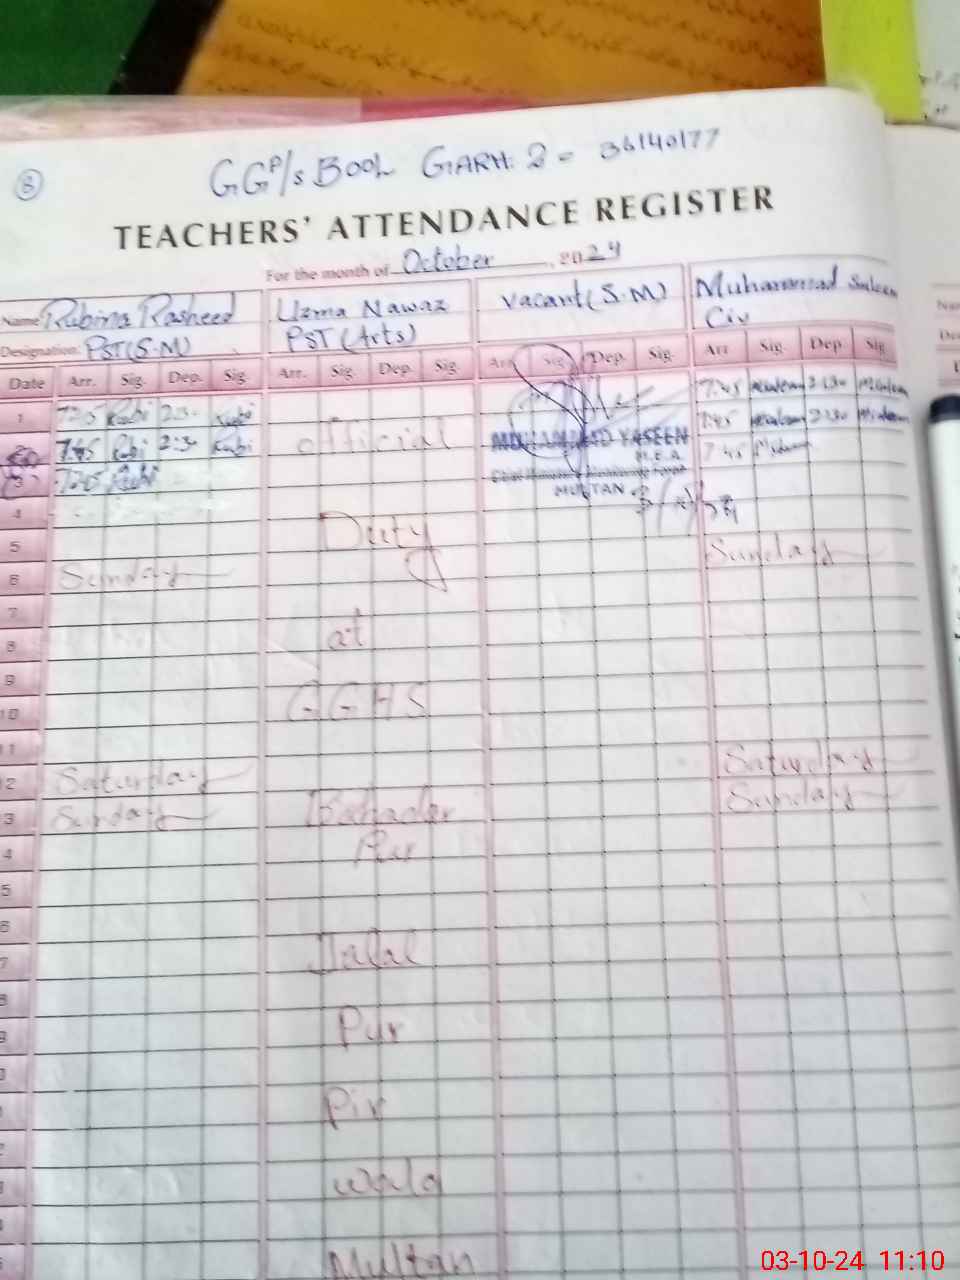 8
GGP/s BOOL GARH. 2 = 36140177
TEACHERS' ATTENDANCE REGISTER
For the month of October, 2024
Name Rubina Rasheed Uzma Nawaz Vacant (S.M) Muhammad Saleem
Designation. PST(S.M) PST (Arts) Civ
Date Arr. Sig. Dep. Sig. Arr. Sig. Dep. Sig. Arr. Sig. Dep. Sig. Arr. Sig. Dep. Sig.
1 7:45 Rubi 2:30 Rubi 7:45 2:30
2 7:45 Rubi 2:30 Rubi official MUHAMMAD YASEEN 7:45 2:30
M.E.A.
3 7:45 Rubi 7:45
MULTAN
4 Duty
5 Sunday
6 Sunday
7
8 at
9
10 GGHS
11 Saturday
2 Saturday Sunday
3 Sunday Bahader
4 Pur
5
6
7 Jalal
8
9 Pur
Pir
wala
Multan
03-10-24 11:10